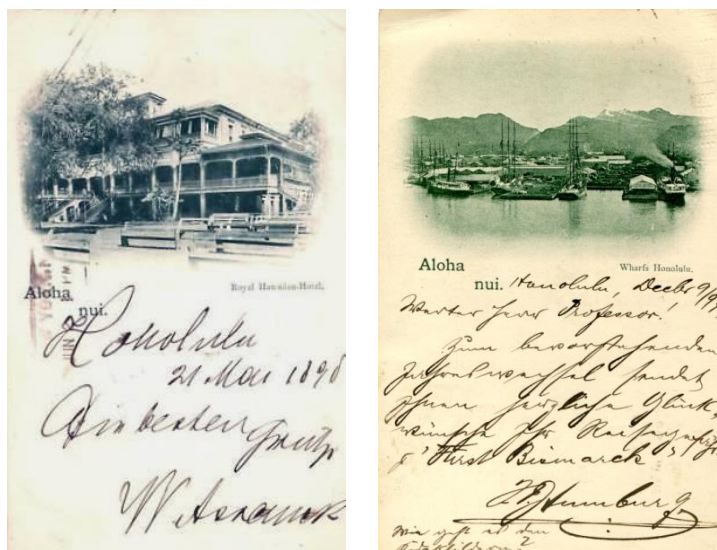 Royal Hawaiian-Hotel.
Aloha
nui.
Honolulu
21 Mai 1898
Die besten Grüße
Wharfs Honolulu.
Aloha
nui.
Honolulu, Decbr 9/9
Werter Herr Professor!
Zum bevorstehenden
Jahreswechsel sendet
Ihnen herzliche Glück-
wünsche Ihr
"Fürst Bismarck"
Wie geht es den